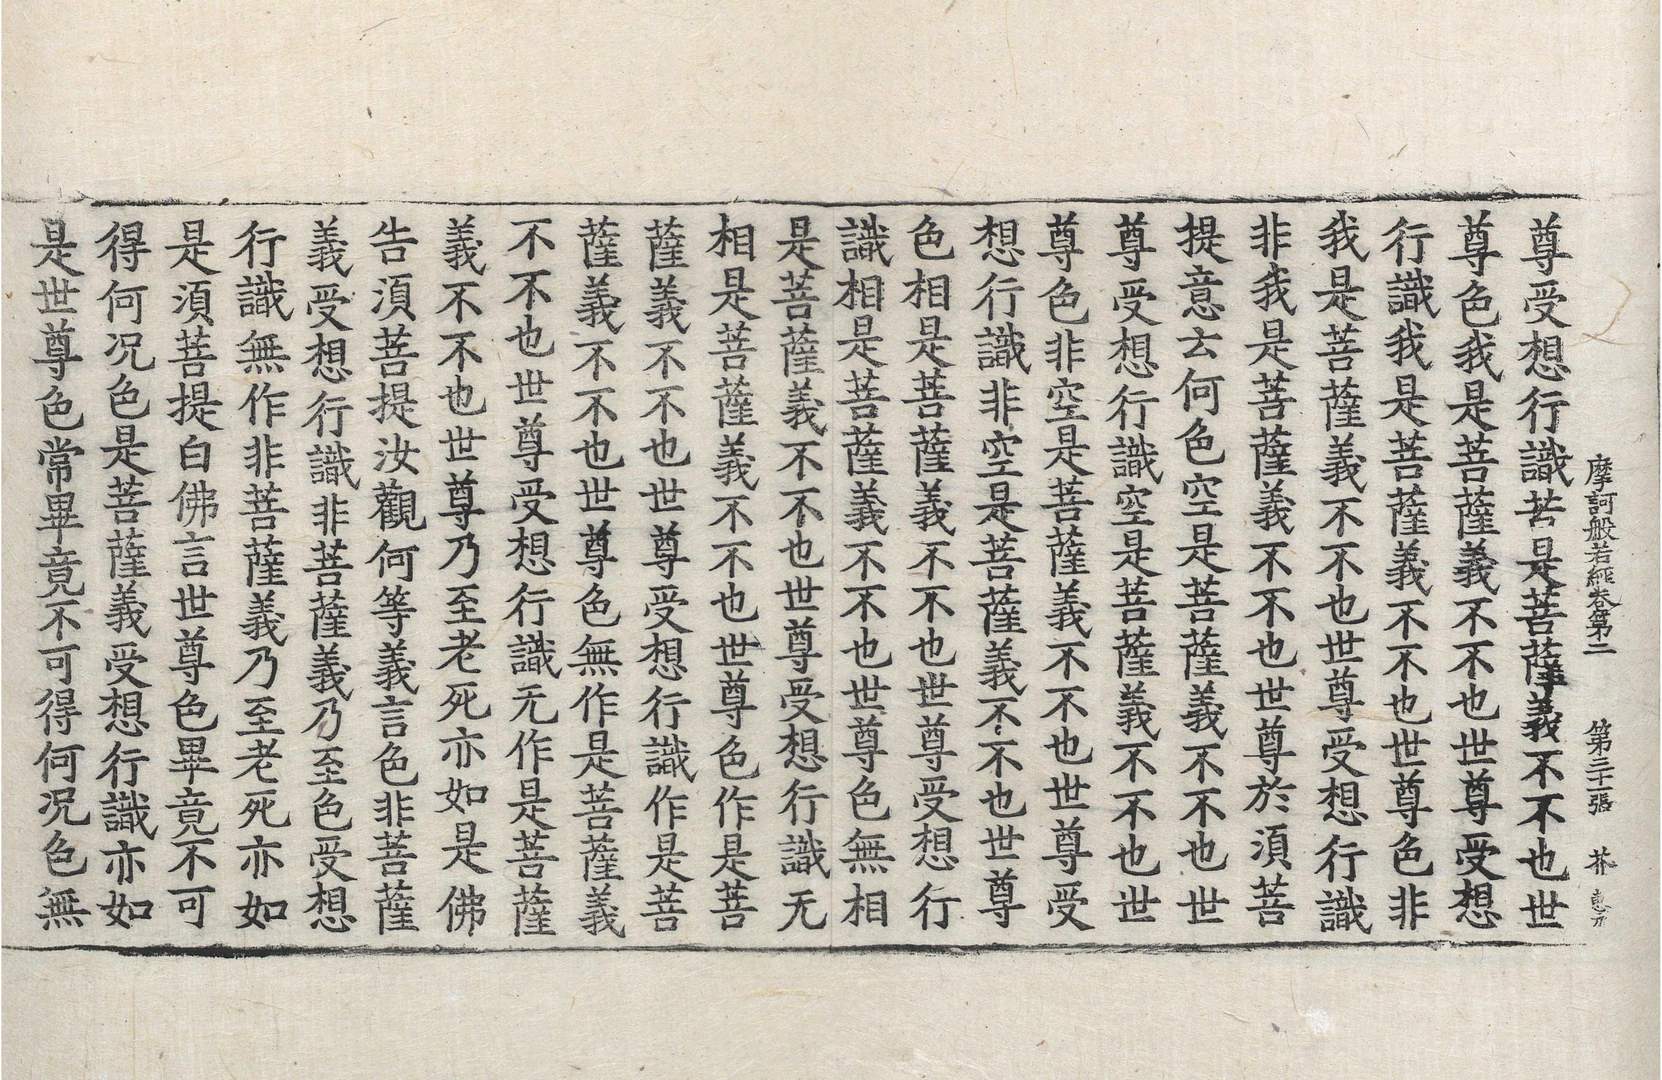 摩訶般若經卷第二 第 張
尊受想行識苦是菩薩義不不也世
尊色我是菩薩義不不也世尊受想
行識我是菩薩義不不也世尊色非
我是菩薩義不不也世尊受想行識
非我是菩薩義不不也世尊於湏菩
提意云何色空是菩薩義不不也世
尊受想行識空是菩薩義不不也世
尊色非空是菩薩義不不也世尊受
想行識非空是菩薩義不不也世尊
色相是菩薩義不不也世尊受想行
識相是菩薩義不不也世尊色無相
是菩薩義不不也世尊受想行識无
相是菩薩義不不也世尊色作是菩
薩義不不也世尊受想行識作是菩
薩義不不也世尊色無作是菩薩義
不不也世尊受想行識无作是菩薩
義不不也世尊乃至老死亦如是佛
告湏菩提汝觀何等義言色非菩薩
義受想行識非菩薩義乃至色受想
行識無作非菩薩義乃至老死亦如
是湏菩提白佛言世尊色畢竟不可
得何况色是菩薩義受想行識亦如
是世尊色常畢竟不可得何况色無